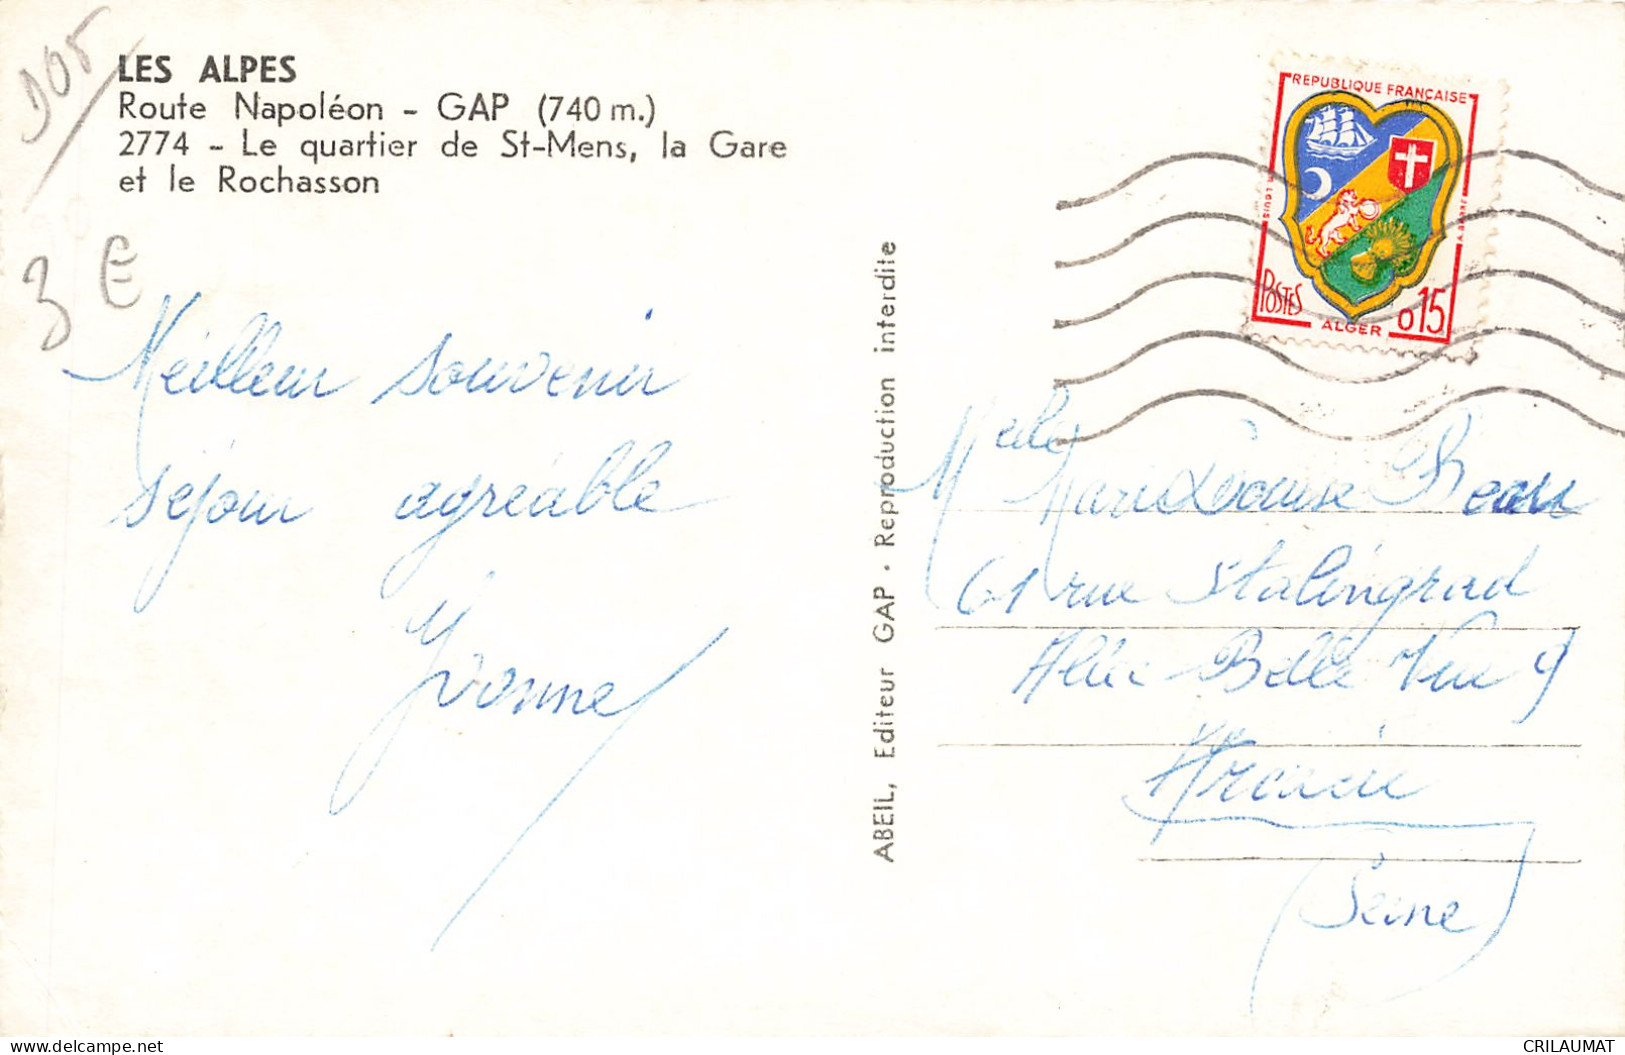 305
LES ALPES
Route Napoléon - GAP (740 m.)
2774 - Le quartier de St-Mens, la Gare
et le Rochasson
3 €
Meilleur souvenir
séjour agréable
Yvonne
ABEIL, Editeur GAP - Reproduction interdite
REPUBLIQUE FRANÇAISE
POSTES
ALGER
0,15
Melle
Marie Louise
61 rue Stalingrad
Allée Belle Vue 9
Arcueil
(Seine)
CRILAUMAT